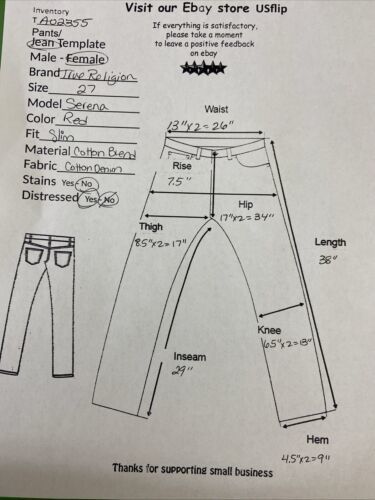 Visit our Ebay store USflip
If everything is satisfactory,
please take a moment
to leave a positive feedback
on ebay
Inventory
T A02355
Pants/
Jean Template
Male - Female
Brand True Religion
Size 27
Model Serena
Color Red
Fit Slim
Material Cotton Blend
Fabric Cotton Denim
Stains Yes-No
Distressed Yes-No
Waist
13"x2=26"
Rise
7.5"
Hip
17"x2=34"
Thigh
8.5"x2=17"
Length
38"
Knee
6.5"x2=13"
Inseam
29"
Hem
4.5"x2=9"
Thanks for supporting small business